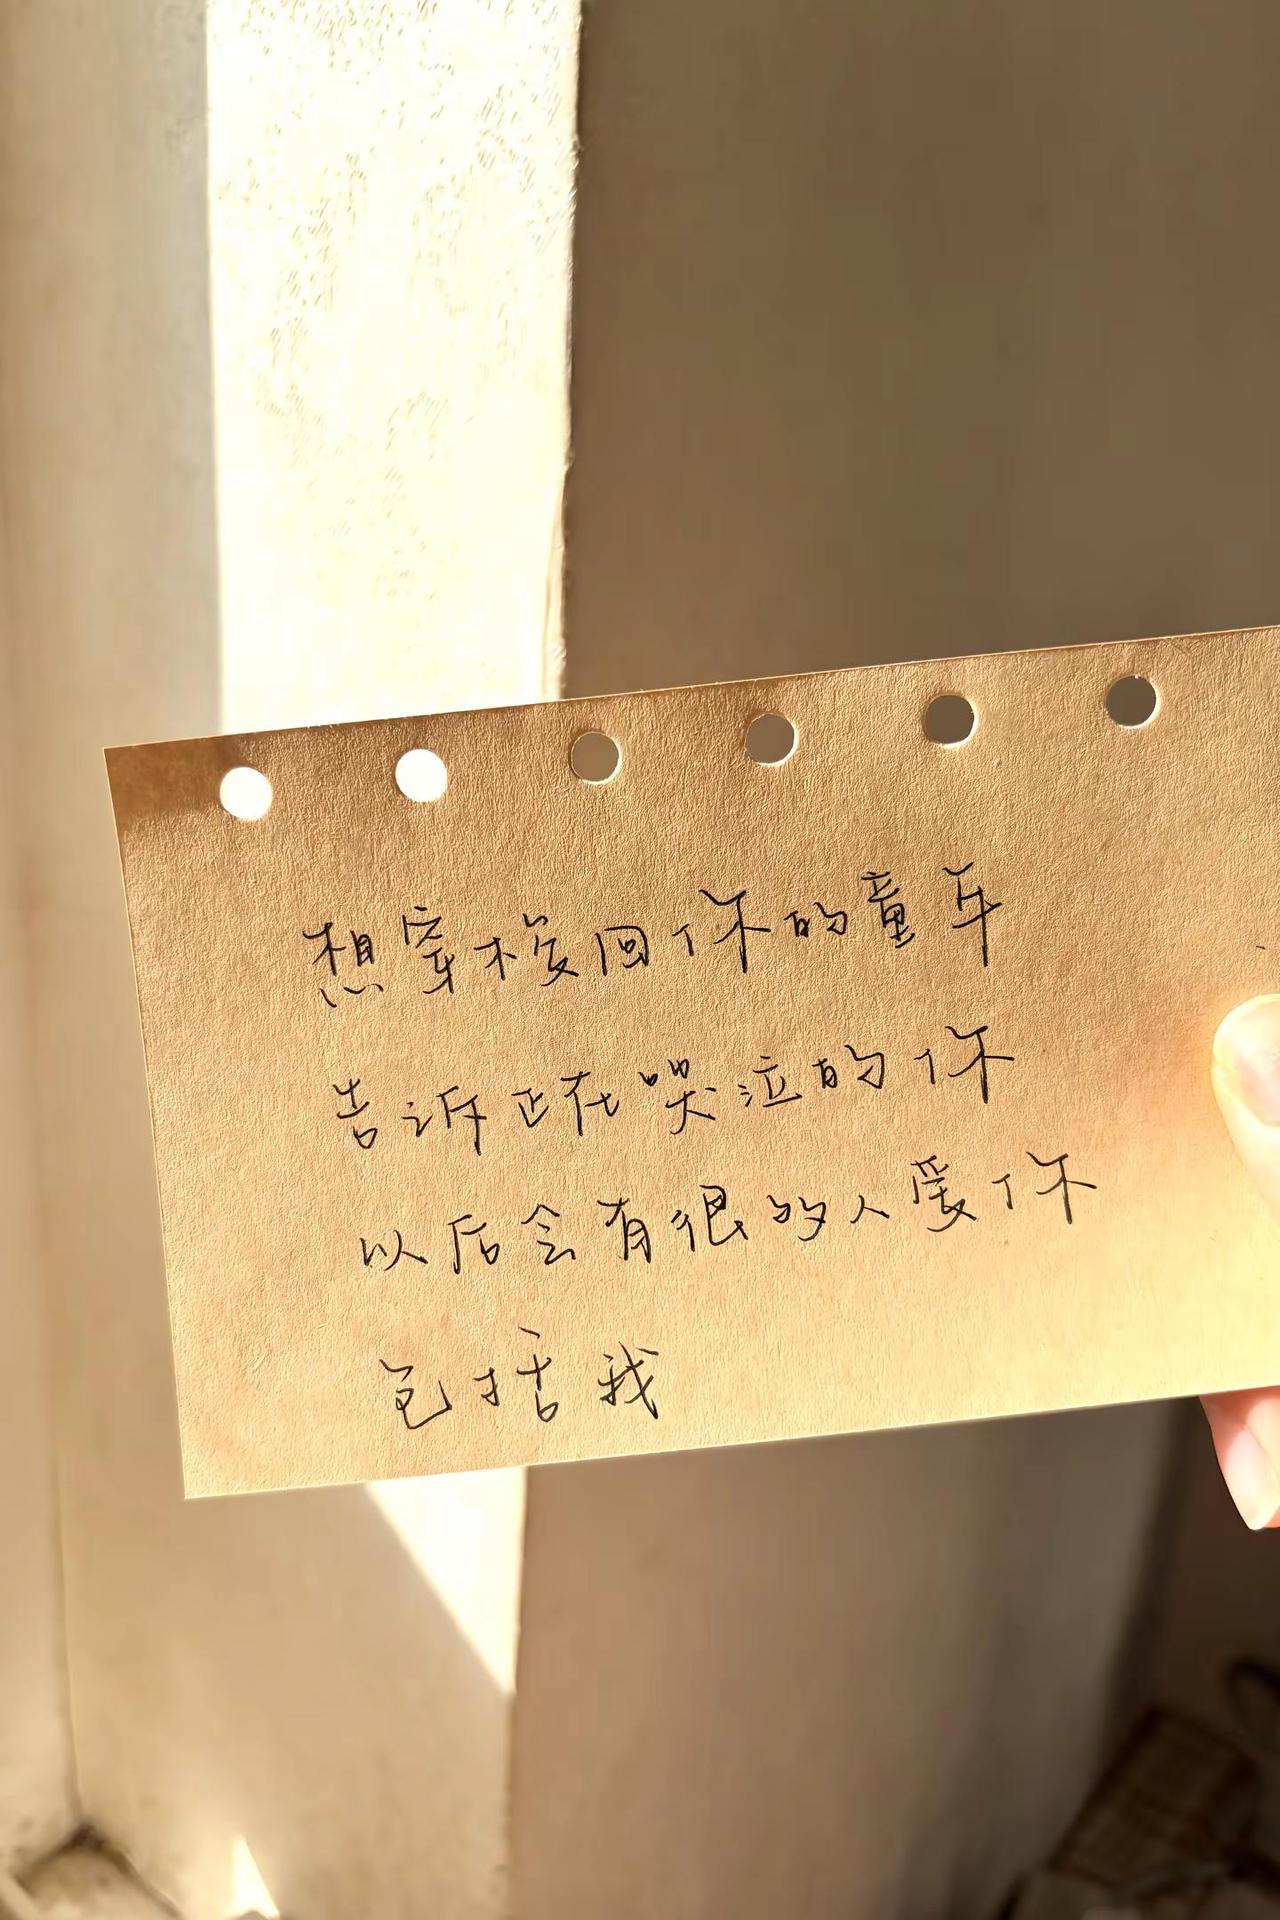 想穿梭回你的童年
告诉正在哭泣的你
以后会有很多的人爱你
包括我